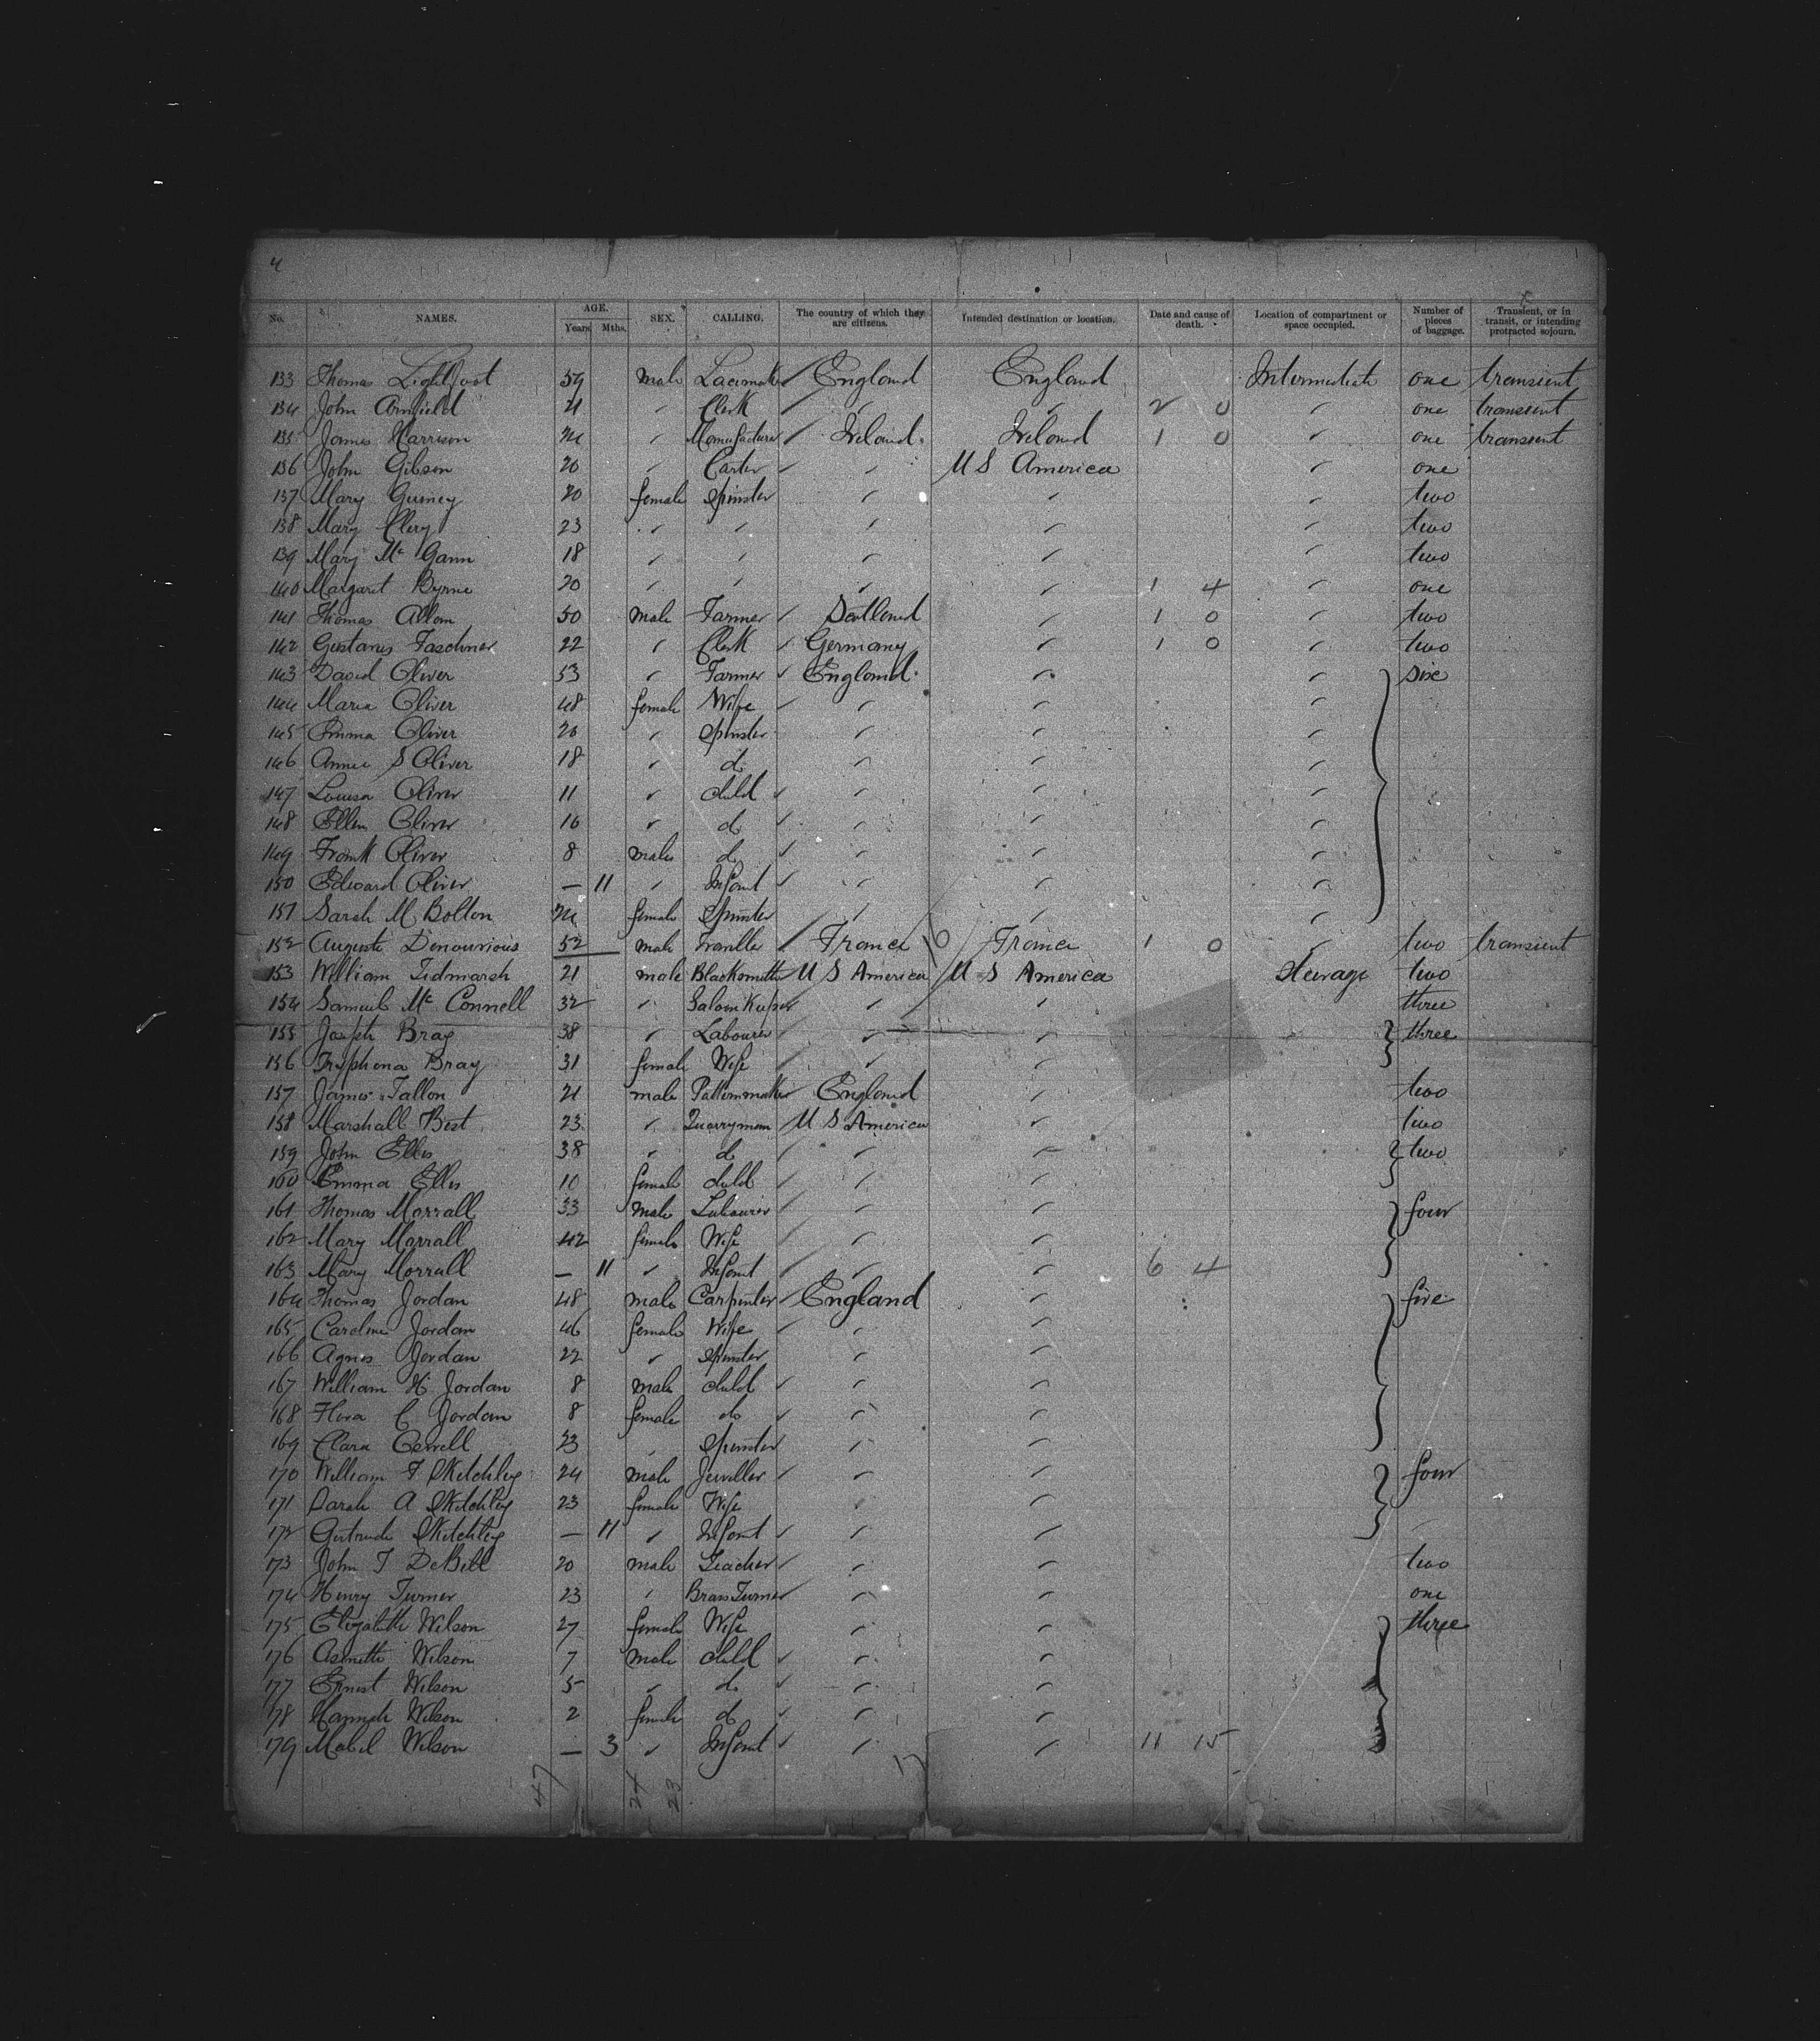 4
No. NAMES. AGE. Years Mths. SEX. CALLING. The country of which they are citizens. Intended destination or location. Date and cause of death. Location of compartment or space occupied. Number of pieces of baggage. Transient, or in transit, or intending protracted sojourn.
133 Thomas Lightfoot 59 male Lacemaker England England Intermediate one transient
134 John Armfield 21 " Clerk " " 2 0 " one transient
135 James Harrison 24 " Manufacturer Ireland Ireland 1 0 " one transient
136 John Gibson 20 " Carter " U S America " one
137 Mary Gurney 20 female Spinster " " " two
138 Mary Clery 23 " " " " " two
139 Mary Mc Gann 18 " " " " " two
140 Margaret Byrne 20 " " " " 1 4 " one
141 Thomas Allom 50 male Farmer Scotland " 1 0 " two
142 Gustavus Faschner 22 " Clerk Germany " 1 0 " two
143 David Oliver 53 " Farmer England " " six
144 Maria Oliver 48 female Wife " " "
145 Emma Oliver 20 " Spinster " " "
146 Annie S Oliver 18 " do " " "
147 Louisa Oliver 11 " child " " "
148 Ellen Oliver 10 " do " " "
149 Frank Oliver 8 male do " " "
150 Edward Oliver — 11 " Infant " " "
151 Sarah M Bolton 24 female Spinster " " "
152 Auguste 52 male Traveller France 0 France 1 0 " two transient
153 William Tidmarsh 21 male Blacksmith U S America U S America Steerage two
154 Samuel Mc Connell 32 " Saloon Keeper " " three
155 Joseph Bray 38 " Labourer " " three
156 Tryphena Bray 31 female Wife " "
157 James Fallon 21 male Patternmaker England " two
158 Marshall Best 23 " Quarryman U S America " two
159 John Ellis 38 " do " " two
160 Emma Ellis 10 female child " "
161 Thomas Morrall 33 male Labourer " " four
162 Mary Morrall 42 female Wife " "
163 Mary Morrall — 11 " Infant " " 6 4
164 Thomas Jordan 48 male Carpenter England " five
165 Caroline Jordan 46 female Wife " "
166 Agnes Jordan 22 " Spinster " "
167 William H Jordan 8 male child " "
168 Flora C Jordan 8 female do " "
169 Clara 23 " Spinster " "
170 William F Sketchley 24 male Jeweller " " four
171 Sarah A Sketchley 23 female Wife " "
172 Gertrude Sketchley — 11 " Infant " "
173 John T DeBill 20 male Teacher " " two
174 Henry Turner 23 " Brass Turner " " one
175 Elizabeth Wilson 27 female Wife " " three
176 Wilson 7 male child " "
177 Ernest Wilson 5 " do " "
178 Hannah Wilson 2 female do " "
179 Mabel Wilson — 3 " Infant " " 11 15
47 24 23